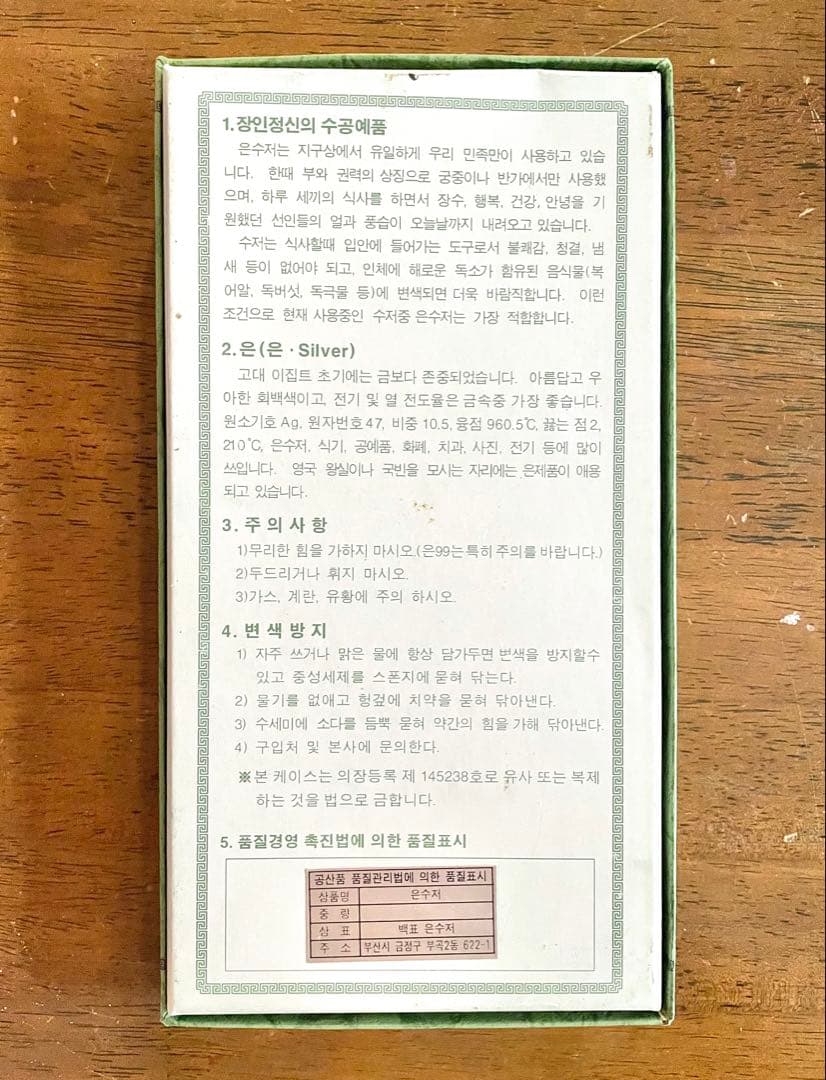 1.장인정신의 수공예품
은수저는 지구상에서 유일하게 우리 민족만이 사용하고 있습
니다. 한때 부와 권력의 상징으로 궁중이나 반가에서만 사용했
으며, 하루 세끼의 식사를 하면서 장수, 행복, 건강, 안녕을 기
원했던 선인들의 얼과 풍습이 오늘날까지 내려오고 있습니다.
수저는 식사할때 입안에 들어가는 도구로서 불쾌감, 청결, 냄
새 등이 없어야 되고, 인체에 해로운 독소가 함유된 음식물(복
어알, 독버섯, 독극물 등)에 변색되면 더욱 바람직합니다. 이런
조건으로 현재 사용중인 수저중 은수저는 가장 적합합니다.
2.은(은·Silver)
고대 이집트 초기에는 금보다 존중되었습니다. 아름답고 우
아한 회백색이고, 전기 및 열 전도율은 금속중 가장 좋습니다.
원소기호 Ag, 원자번호 47, 비중 10.5, 융점 960.5℃, 끓는 점 2,
210℃, 은수저, 식기, 공예품, 화폐, 치과, 사진, 전기 등에 많이
쓰입니다. 영국 왕실이나 국빈을 모시는 자리에는 은제품이 애용
되고 있습니다.
3.주의사항
1)무리한 힘을 가하지 마시오.(은99는 특히 주의를 바랍니다.)
2)두드리거나 휘지 마시오.
3)가스, 계란, 유황에 주의 하시오.
4.변색방지
1) 자주 쓰거나 맑은 물에 항상 담가두면 변색을 방지할수
있고 중성세제를 스폰지에 묻혀 닦는다.
2) 물기를 없애고 헝겊에 치약을 묻혀 닦아낸다.
3) 수세미에 소다를 듬뿍 묻혀 약간의 힘을 가해 닦아낸다.
4) 구입처 및 본사에 문의한다.
※본 케이스는 의장등록 제 145238호로 유사 또는 복제
하는 것을 법으로 금합니다.
5. 품질경영 촉진법에 의한 품질표시
공산품 품질관리법에 의한 품질표시
상품명 은수저
중 량
상 표 백표 은수저
주 소 부산시 금정구 부곡2동 622-1